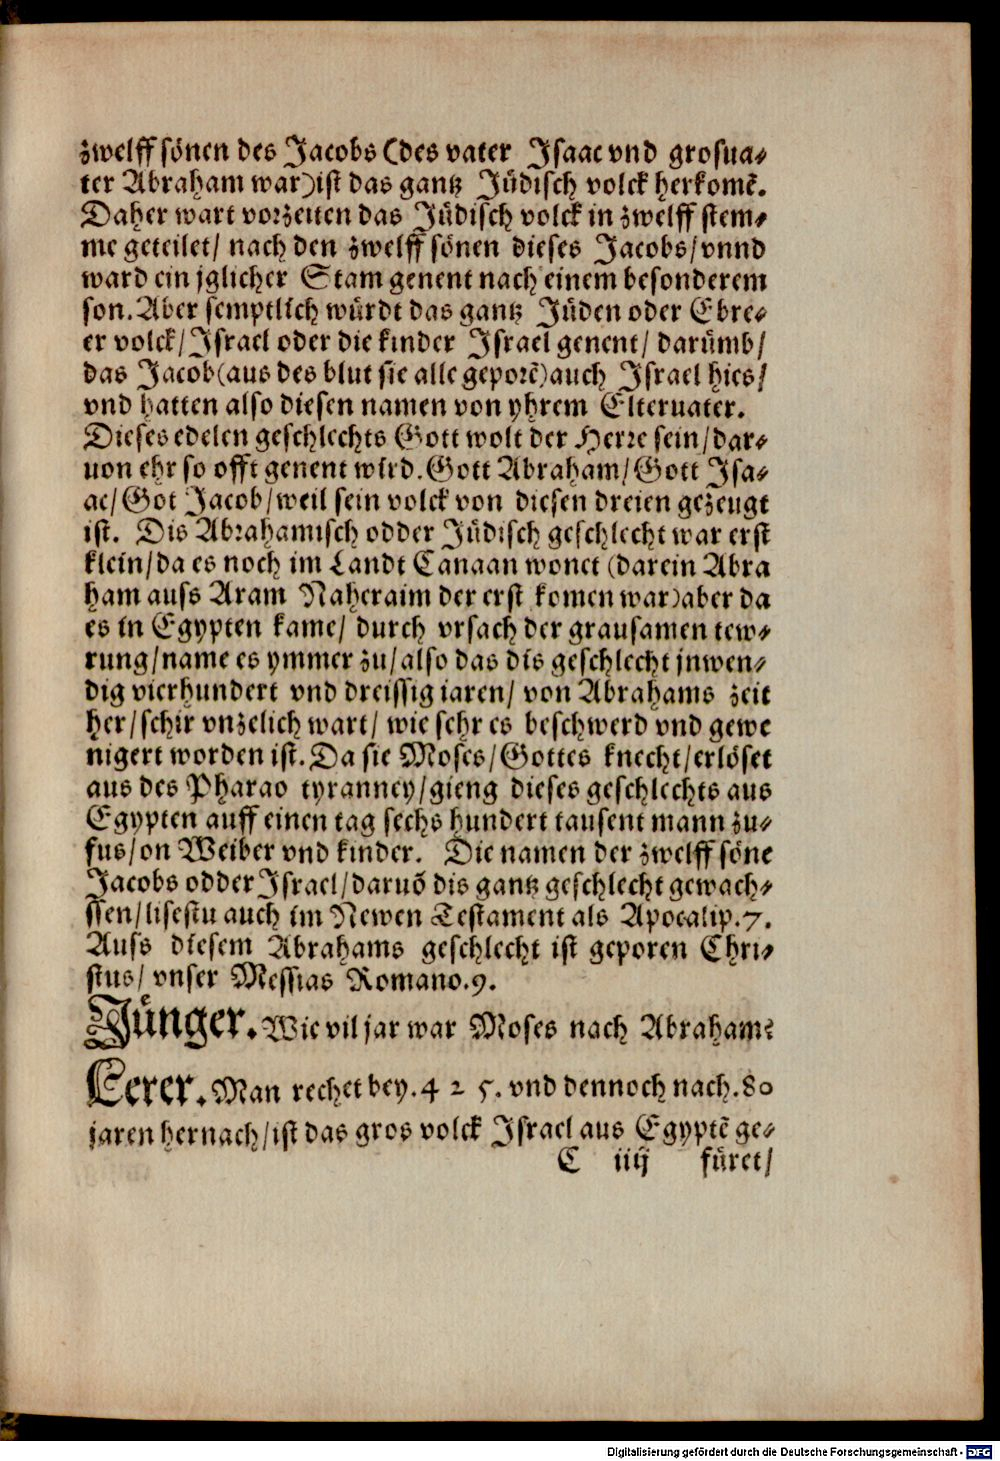 zwelff sönen des Jacobs (des vater Isaac vnd grosua⸗
ter Abraham war) ist das gantz Jüdisch volck herkomẽ.
Daher wart vorzeiten das Jüdisch volck in zwelff stem⸗
me geteilet/ nach den zwelff sönen dieses Jacobs/ vnnd
ward ein jglicher Stam genent nach einem besonderem
son. Aber semptlich würdt das gantz Jüden oder Ebre⸗
er volck/ Israel oder die kinder Israel genent/ darümb/
das Jacob (aus des blut sie alle geporẽ) auch Israel hies/
vnd hatten also diesen namen von yhrem Elteruater.
Dieses edelen geschlechts Gott wolt der Herre sein/ dar⸗
uon ehr so offt genent wird. Gott Abraham/ Gott Isa⸗
ac/ Got Jacob/ weil sein volck von diesen dreien gezeugt
ist. Dis Abrahamisch odder Jüdisch geschlecht war erst
klein/ da es noch im Landt Canaan wonet (darein Abra
ham auss Aram Naheraim der erst komen war) aber da
es in Egypten kame/ durch vrsach der grausamen tew⸗
rung/ name es ymmer zu/ also das dis geschlecht jnwen⸗
dig vierhundert vnd dreissig iaren/ von Abrahams zeit
her/ schir vnzelich wart/ wie sehr es beschwerd vnd gewe
nigert worden ist. Da sie Moses/ Gottes knecht/ erlöset
aus des Pharao tyranney/ gieng dieses geschlechts aus
Egypten auff einen tag sechs hundert tausent mann zu⸗
fus/ on Weiber vnd kinder. Die namen der zwelff söne
Jacobs odder Israel/ daruõ dis gantz geschlecht gewach⸗
ssen/ lisestu auch im Newen Testament als Apocalip.7.
Auss diesem Abrahams geschlecht ist geporen Chri⸗
stus/ vnser Messias Romano.9.
Jünger. Wie vil jar war Moses nach Abraham?
Lerer. Man rechet bey. 4 2 5. vnd dennoch nach. 80
jaren hernach/ ist das gros volck Israel aus Egyptẽ ge⸗
C iiij füret/
Digitalisierung gefördert durch die Deutsche Forschungsgemeinschaft - DFG